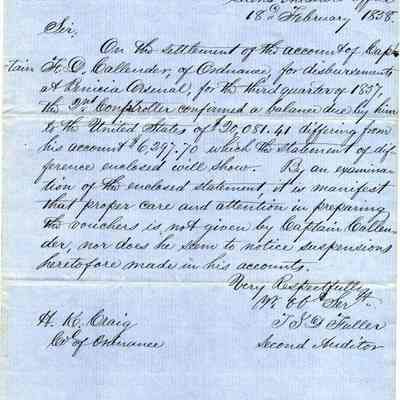 18th February 1858.
Sir,
On the settlement of the account of Cap-
tain F. D. Callender, of Ordnance, for disbursements
at Benicia Arsenal, for the third quarter of 1857,
the 2nd Comptroller confirmed a balance due by him
to the United States of $20,081.41 differing from
his account $6,297.70 which the Statement of dif-
ference enclosed will show. By an examina-
tion of the enclosed Statement, it is manifest
that proper care and attention in preparing
the vouchers is not given by Captain Callen-
der, nor does he seem to notice suspensions
heretofore made in his accounts.
Very Respectfully
Yr Obt Servt
H. K. Craig
Col of Ordnance
Fuller
Second Auditor